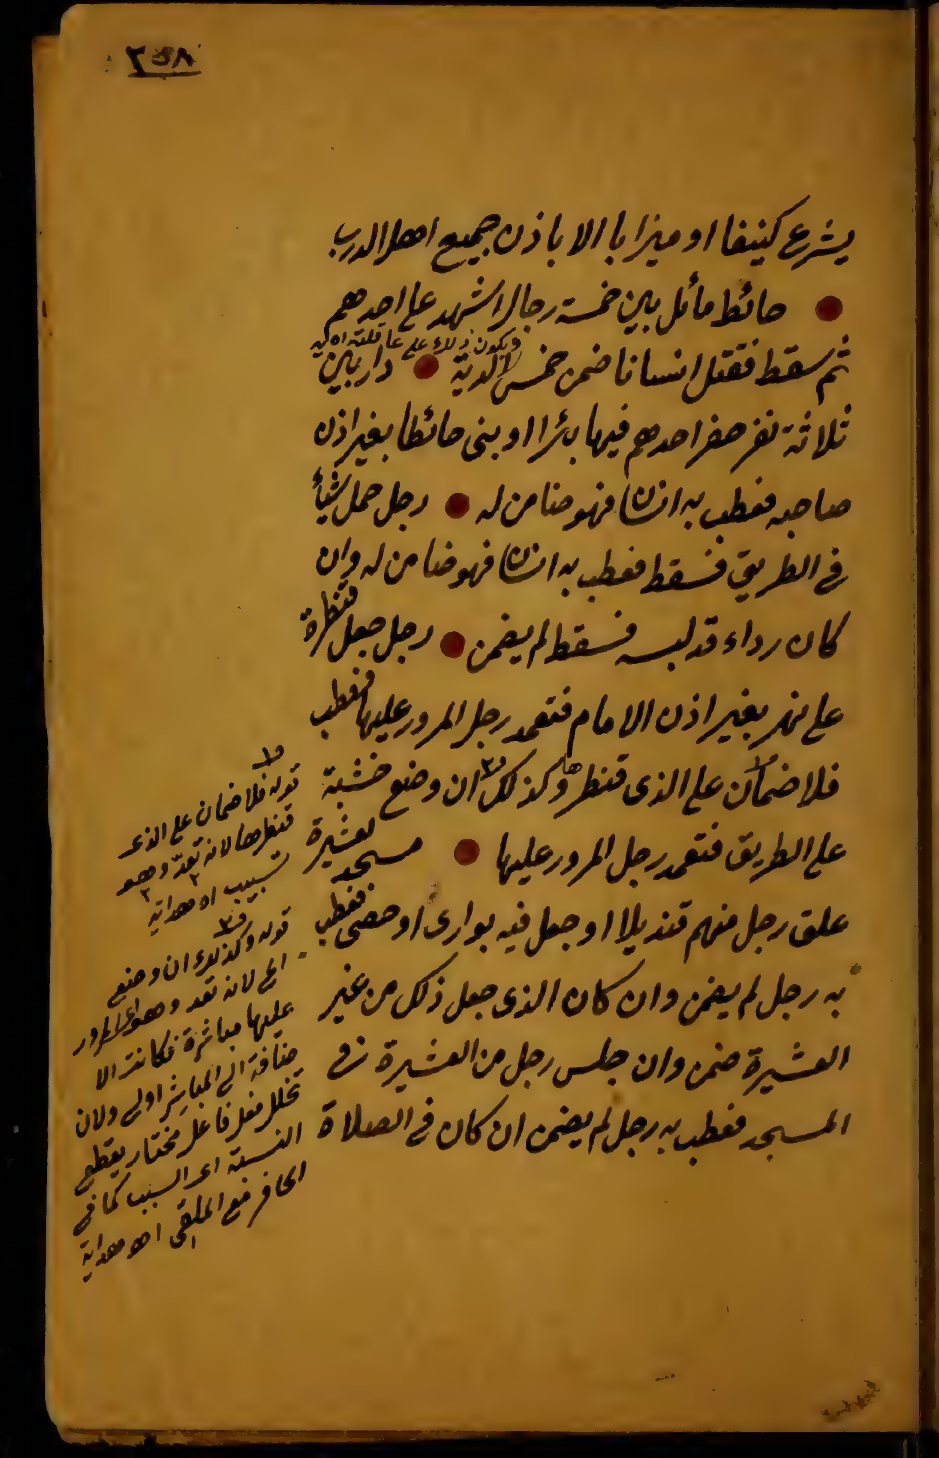 ٢٥٨
يشرع كنيفا او ميزابا الا باذن جميع اهل الدرب
حائط مائل بين خمسة رجال اشهد على احدهم
ويكون ذلك على عاقلته اه
ثم سقط فقتل انسانا ضمن خمس الدية دار بين
ثلاثة نفر حفر احدهم فيها بئرا او بنى حائطا بغير اذن
صاحبه فعطب به انسان فهو ضامن له رجل حمل شيأ
فى الطريق فسقط فعطب به انسان فهو ضامن له وان
كان رداء قد لبسه فسقط لم يضمن رجل جعل قنطرة
على نهر بغير اذن الامام فتعمد رجل المرور عليها فعطب
فلا ضمان على الذى قنطرها وكذلك ان وضع خشبة
على الطريق فتعمد رجل المرور عليها مسجد لعشيرة
علق رجل منهم قنديلا او جعل فيه بوارى او حصى فعطب
به رجل لم يضمن وان كان الذى جعل ذلك من غير
العشيرة ضمن وان جلس رجل من العشيرة فى
المسجد فعطب به رجل لم يضمن ان كان فى الصلاة
قوله فلا ضمان على الذى
قنطرها لانه تعدّ وهو
تسبيب اه هداية
قوله وكذلك ان وضع
الخ لانه تعد وهو اى المرور
عليها مباشرة فكانت الا
ضافة الى المباشر اولى ولان
تخلل فعل فاعل مختار يقطع
النسبة اى السبب كما فى
الحافر مع الملقى اهـ هداية